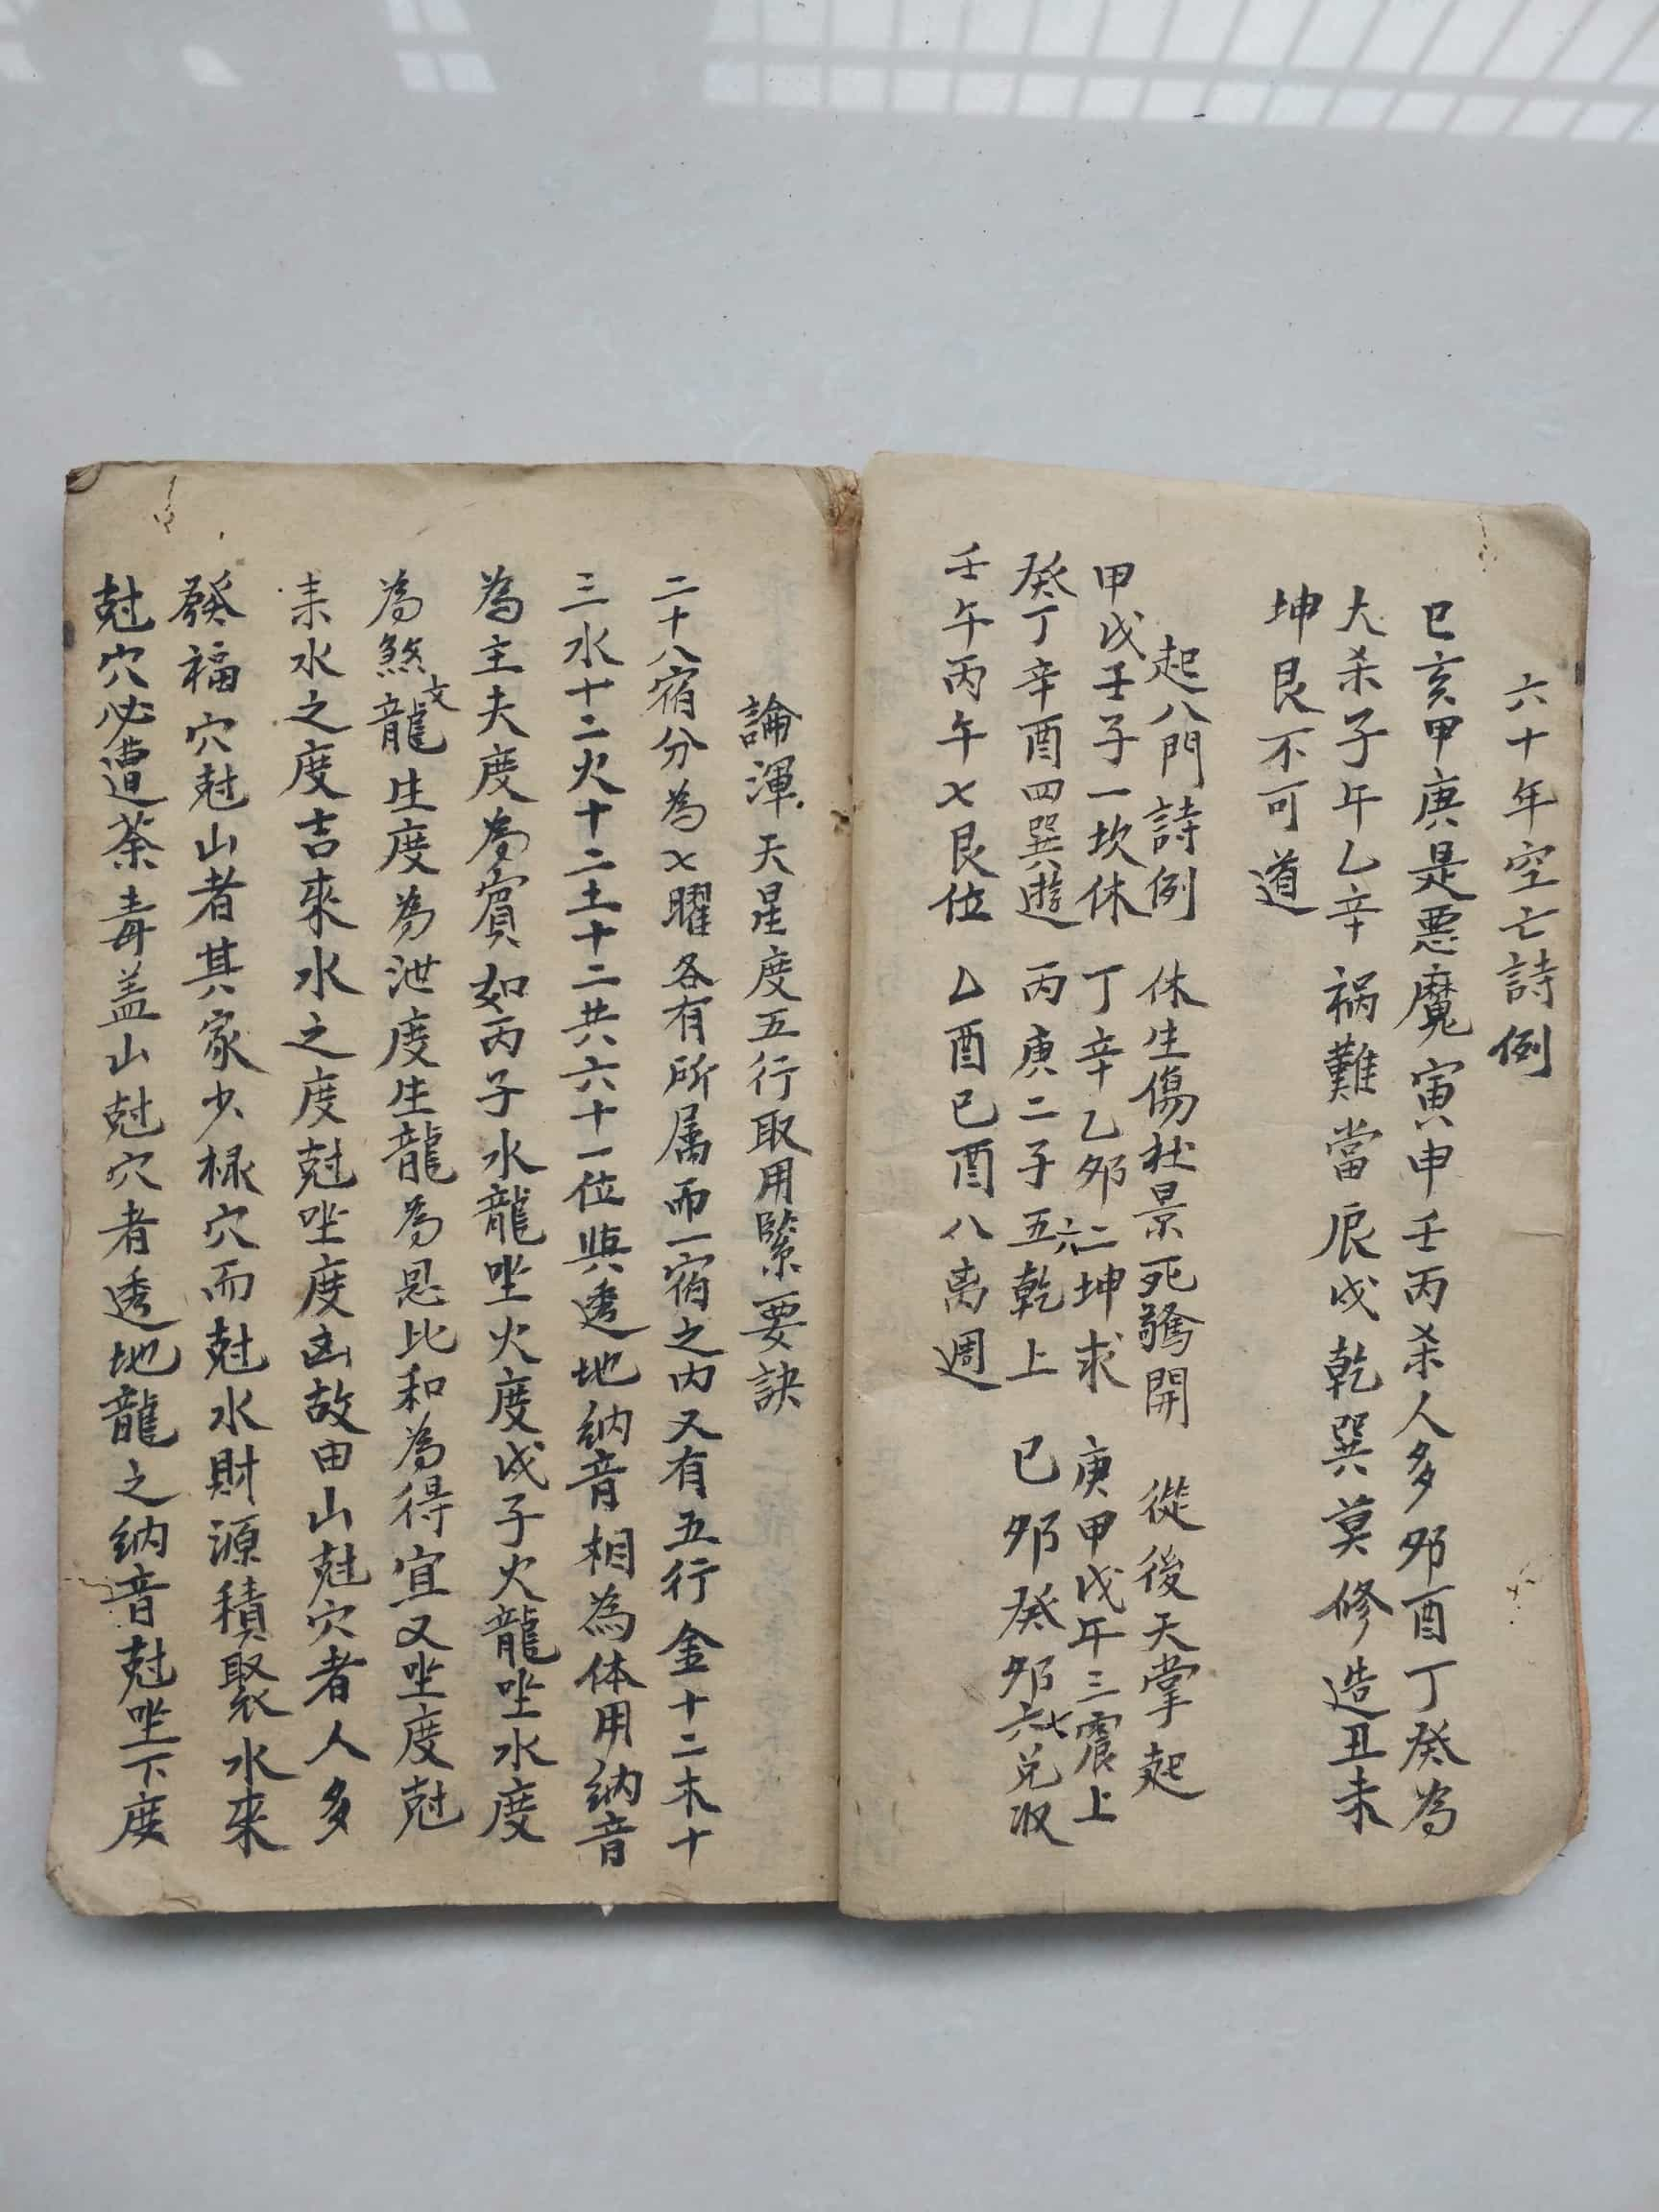 六十年空亡詩例
巳亥甲庚是悪魔寅申壬丙杀人多夘酉丁癸為
大杀子午乙辛禍難當辰戍乾巽莫修造丑未
坤艮不可道
起八門詩例 休生傷杜景死驚開 從後天掌起
甲戊壬子一坎休 丁辛乙夘二坤求 庚甲戊午三震上
癸丁辛酉四巽遊 丙庚二子五六乾上 已夘癸夘六七兑収
壬午丙午〤艮位 乙酉已酉八离週
論渾天星度五行取用緊要訣
二十八宿分為〤曜各有所属而一宿之内又有五行金十二木十
三水十二火十二土十二共六十一位與透地纳音相為体用纳音
為主夫度為賓如丙子水龍坐火度戊子火龍坐水度
為煞文龍生度為泄度生龍為恩比和為得宜又坐度尅
来水之度吉來水之度尅坐度凶故由山尅穴者人多
發福穴尅山者其家少禄穴而尅水財源積聚水来
尅穴必遭荼毒盖山尅穴者透地龍之纳音尅坐下度